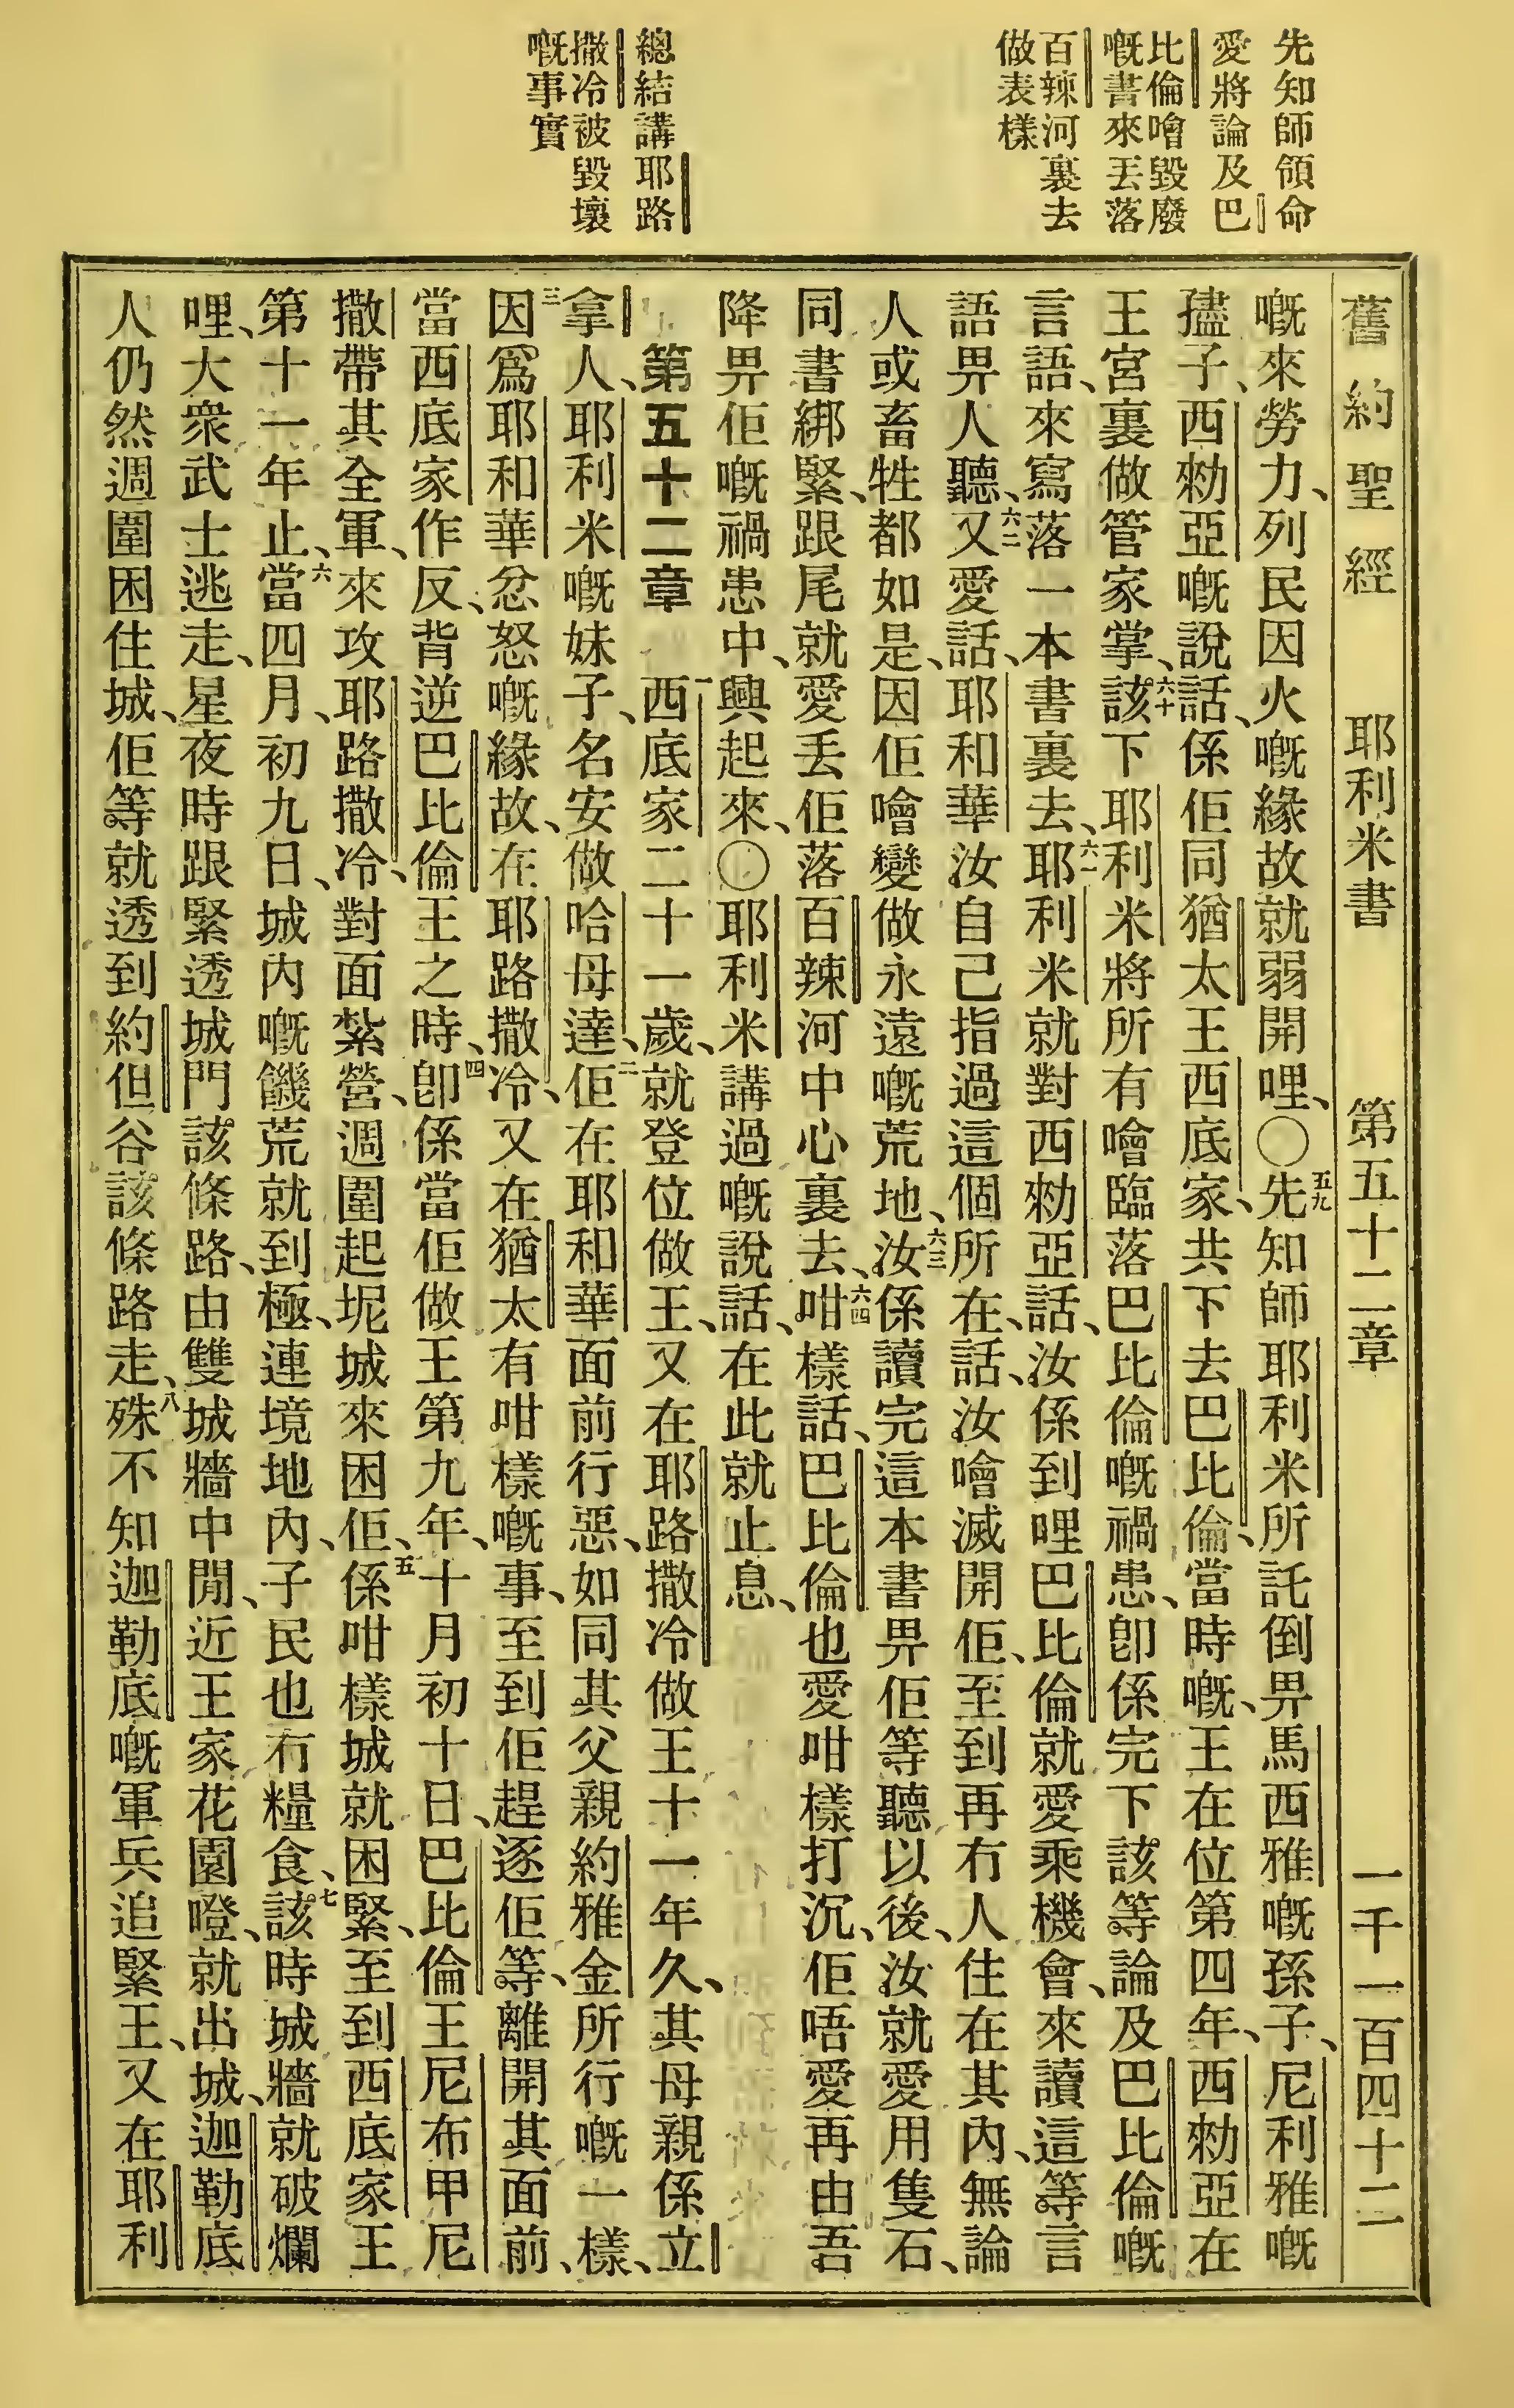 先知師領命
愛將論及巴
比倫噲毀廢
嘅書來丟落
百辣河裏去
做表樣
總結講耶路
撒冷被毀壞
嘅事實
舊約聖經 耶利米書 第五十二章 一千一百四十二
嘅來勞力、列民因火嘅緣故就弱開哩、〇五九先知師耶利米所託倒畀馬西雅嘅孫子、尼利雅嘅
孻子、西勑亞嘅說話、係佢同猶太王西底家、共下去巴比倫、當時嘅、王在位第四年、西勑亞在
王宮裏做管家掌、六十該下耶利米將所有噲臨落巴比倫嘅禍患、卽係完下該等論及巴比倫嘅
言語、來寫落一本書裏去、六一耶利米就對西勑亞話、汝係到哩巴比倫就愛乘機會、來讀這等言
語畀人聽、六二又愛話、耶和華汝自己指過這個所在、話、汝噲滅開佢、至到再冇人住在其內、無論
人或畜牲都如是、因佢噲變做永遠嘅荒地、六三汝係讀完這本書畀佢等聽以後、汝就愛用隻石、
同書綁緊、跟尾就愛丢佢落百辣河中心裏去、六四咁樣話、巴比倫也愛咁樣打沉、佢唔愛再由吾
降畀佢嘅禍患中、興起來、〇耶利米講過嘅說話、在此就止息、
第五十二章 一西底家二十一歲、就登位做王、又在耶路撒冷做王十一年久、其母親係立
拿人、耶利米嘅妹子、名安做哈母達、二佢在耶和華面前行惡、如同其父親約雅金所行嘅一樣、
三因爲耶和華忿怒嘅緣故、在耶路撒冷、又在猶太有咁樣嘅事、至到佢趕逐佢等、離開其面前、
當西底家作反、背逆巴比倫王之時、四卽係當佢做王第九年、十月初十日、巴比倫王尼布甲尼
撒帶其全軍、來攻耶路撒冷、對面紮營、週圍起坭城來困佢、五係咁樣城就困緊、至到西底家王
第十一年止、六當四月、初九日、城內嘅饑荒就到極、連境地內、子民也冇糧食、七該時城牆就破爛
哩、大衆武士逃走、星夜時跟緊透城門該條路、由雙城牆中閒、近王家花園嶝、就出城、迦勒底
人仍然週圍困住城、佢等就透到約但谷該條路走、八殊不知迦勒底嘅軍兵追緊王、又在耶利